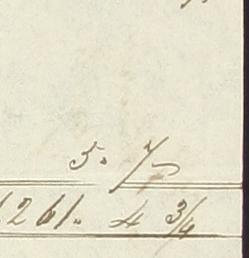 3. 7
1261. 4 3/4